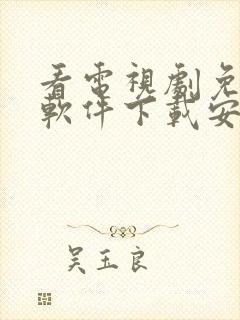 看電視劇免
軟件下載安
吴玉良